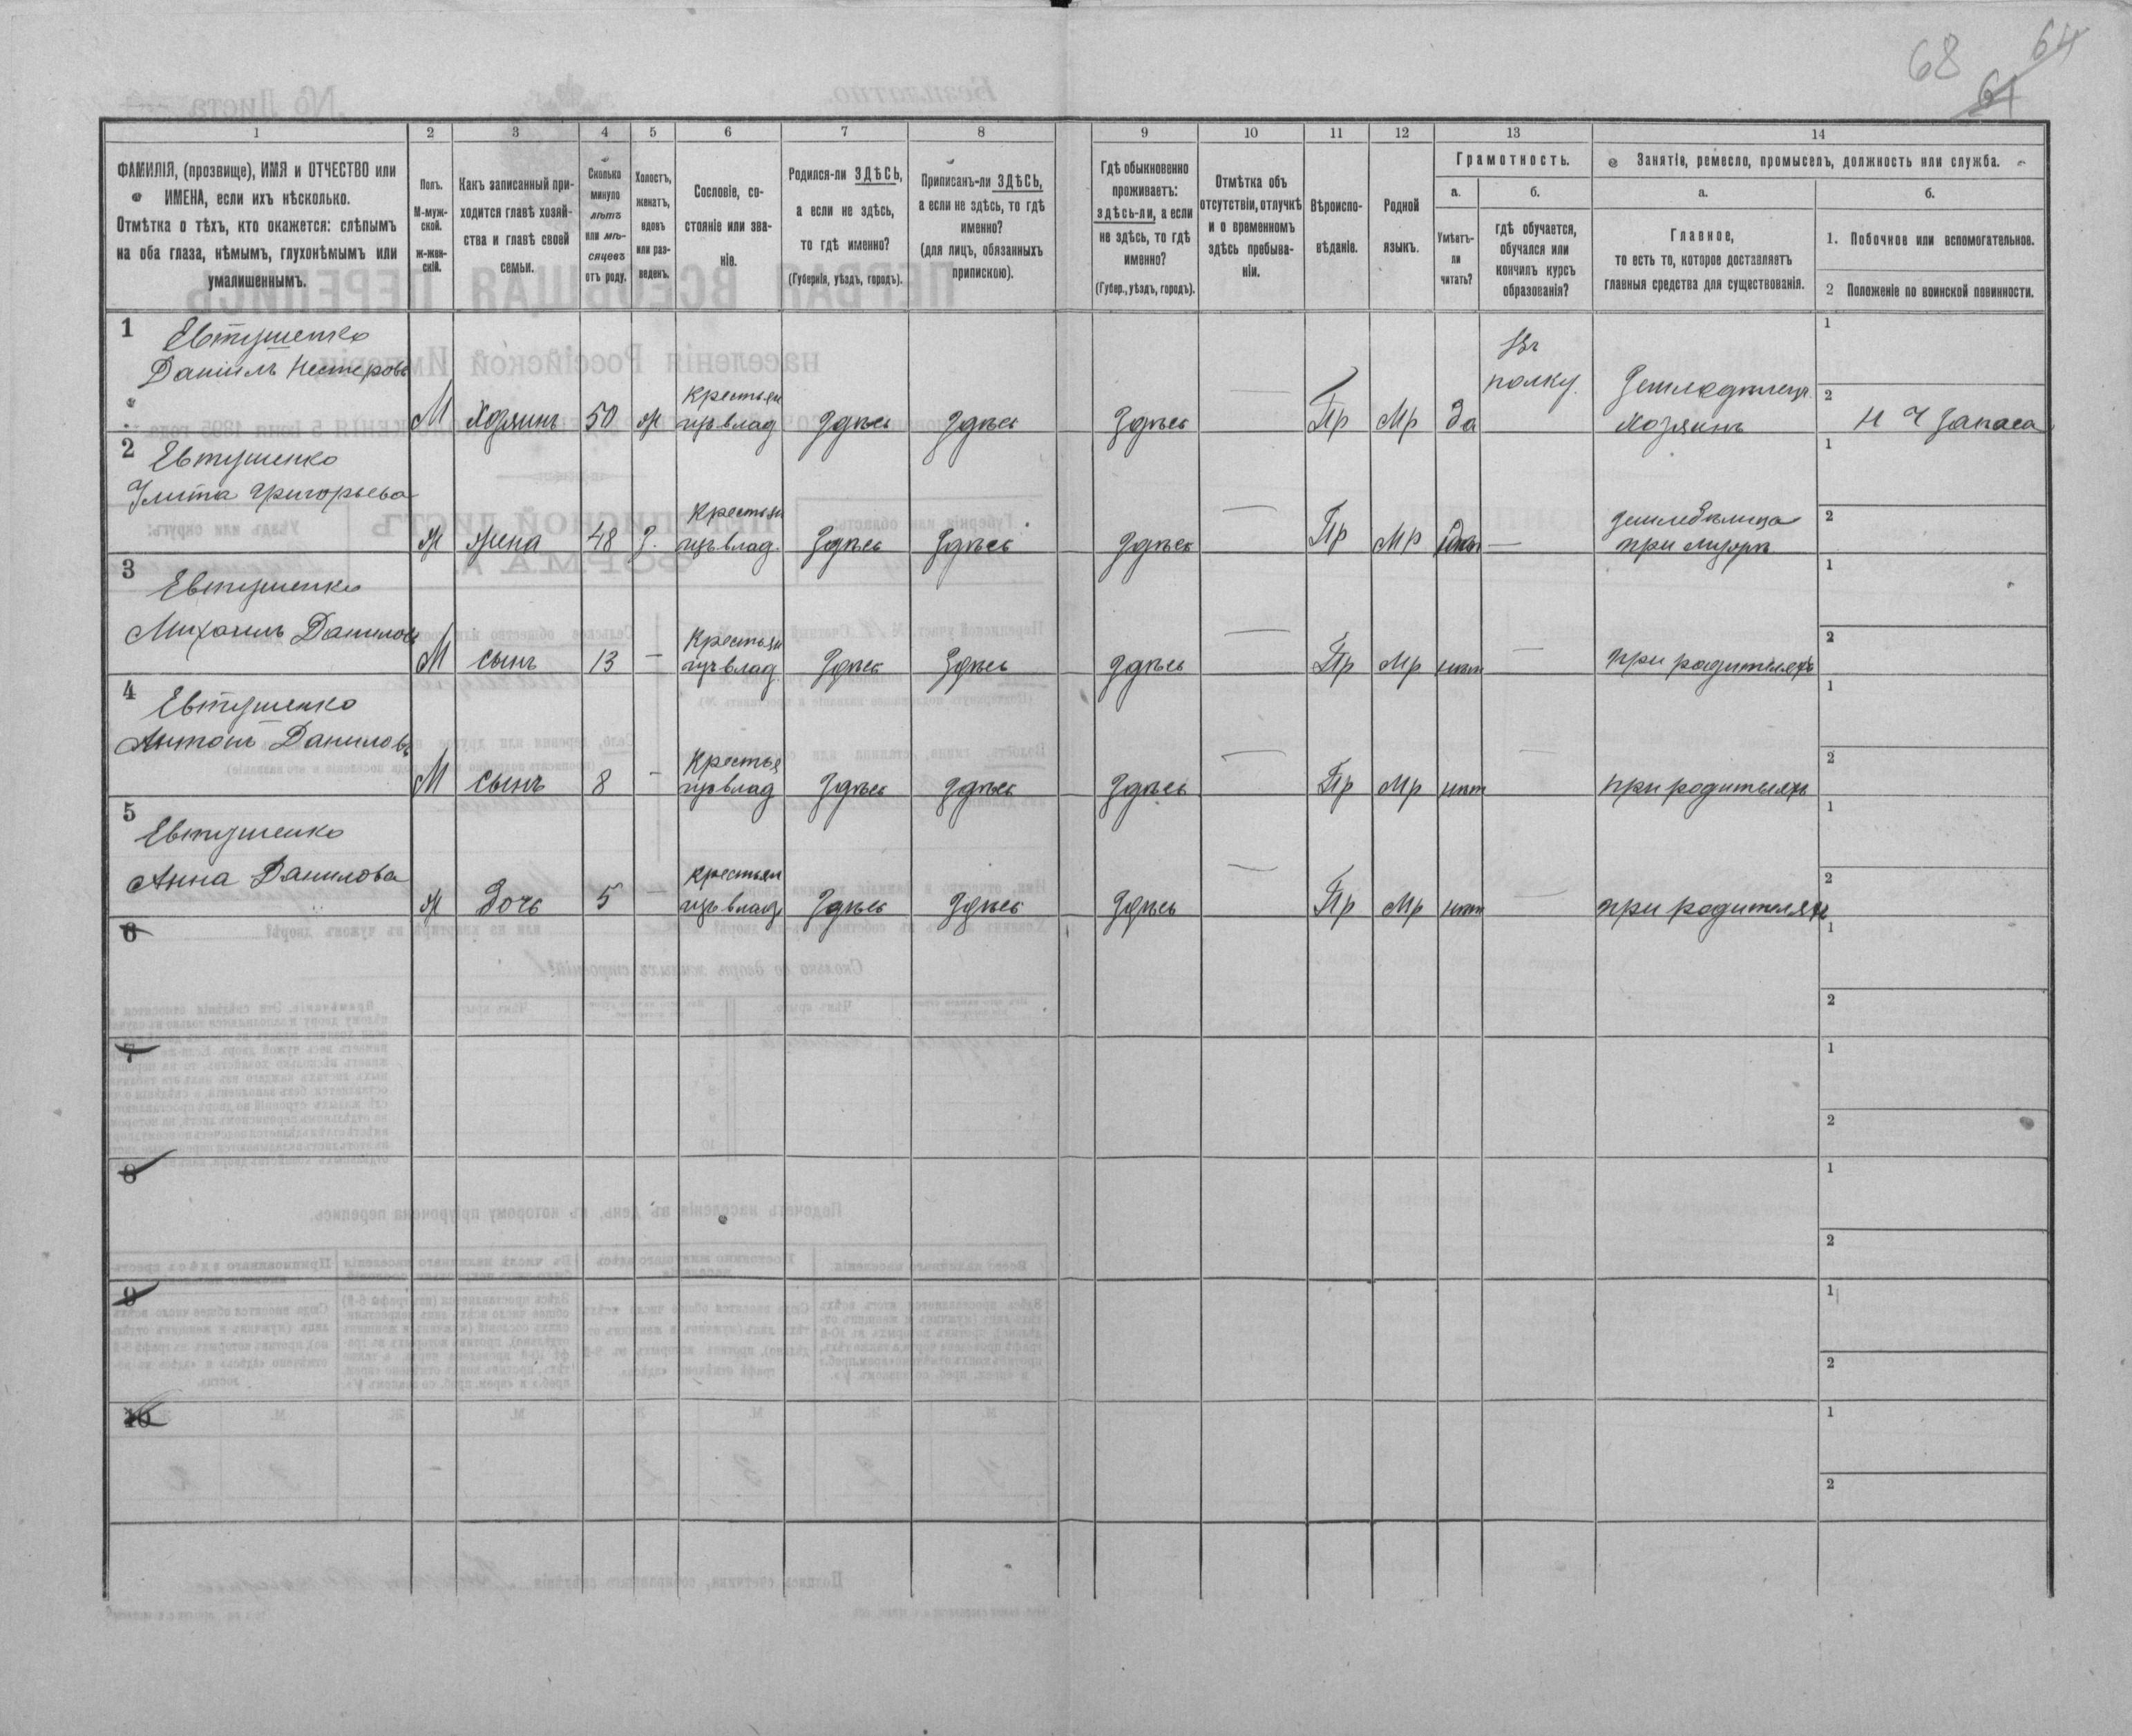 68 64
61
1 2 3 4 5 6 7 8 9 10 11 12 13 14
ФАМИЛІЯ, (прозвище), ИМЯ и ОТЧЕСТВО или
ИМЕНА, если ихъ нѣсколько.
Отмѣтка о тѣхъ, кто окажется: слѣпымъ
на оба глаза, нѣмымъ, глухонѣмымъ или
умалишеннымъ.
Полъ.
М-муж-
ской.
ж-жен-
скій.
Какъ записанный при-
ходится главѣ хозяй-
ства и главѣ своей
семьи.
Сколько
минуло
лѣтъ
или мѣ-
сяцевъ
отъ роду.
Холостъ,
женатъ,
вдовъ
или раз-
веденъ.
Сословіе, со-
стояніе или зва-
ніе.
Родился-ли ЗДѢСЬ,
а если не здѣсь,
то гдѣ именно?
(Губернія, уѣздъ, городъ).
Приписанъ-ли ЗДѢСЬ,
а если не здѣсь, то гдѣ
именно?
(для лицъ, обязанныхъ
припискою).
Гдѣ обыкновенно
проживаетъ:
здѣсь-ли, а если
не здѣсь, то гдѣ
именно?
(Губер., уѣздъ, городъ).
Отмѣтка объ
отсутствіи, отлучкѣ
и о временномъ
здѣсь пребыва-
ніи.
Вѣроиспо-
вѣданіе.
Родной
языкъ.
Грамотность.
а.
Умѣетъ-
ли
читать?
б.
гдѣ обучается,
обучался или
кончилъ курсъ
образованія?
Занятіе, ремесло, промыселъ, должность или служба.
а.
Главное,
то есть то, которое доставляетъ
главныя средства для существованія.
б.
1. Побочное или вспомогательное.
2 Положеніе по воинской повинности.
1 Евтушенко
Даніилъ Нестеровъ
М Хозяинъ 50 ж Крестьян
изъ влад Здѣсь Здѣсь Здѣсь — Пр Мр Да Въ
полку Земледѣлецъ
Хозяинъ 1
2 Н Ч Запаса
2 Евтушенко
Улита Григорьева
ж жена 48 З. Крестьян
изъ влад. Здѣсь Здѣсь Здѣсь — Пр Мр — Земледѣлица
при мужѣ 1
2
3 Евтушенко
Михаилъ Даниловъ
М сынъ 13 — Крестьян
изъ влад. Здѣсь Здѣсь Здѣсь — Пр Мр нѣт — при родителяхъ 1
2
4 Евтушенко
Антонъ Даниловъ
М сынъ 8 — Крестья
изъ влад Здѣсь Здѣсь Здѣсь — Пр Мр нѣт — при родителяхъ 1
2
5 Евтушенко
Анна Данилова
ж Дочь 5 — Крестьян
изъ влад Здѣсь Здѣсь Здѣсь — Пр Мр нѣт — при родителях 1
2
6 1
2
7 1
2
8 1
2
9 1
2
10 1
2